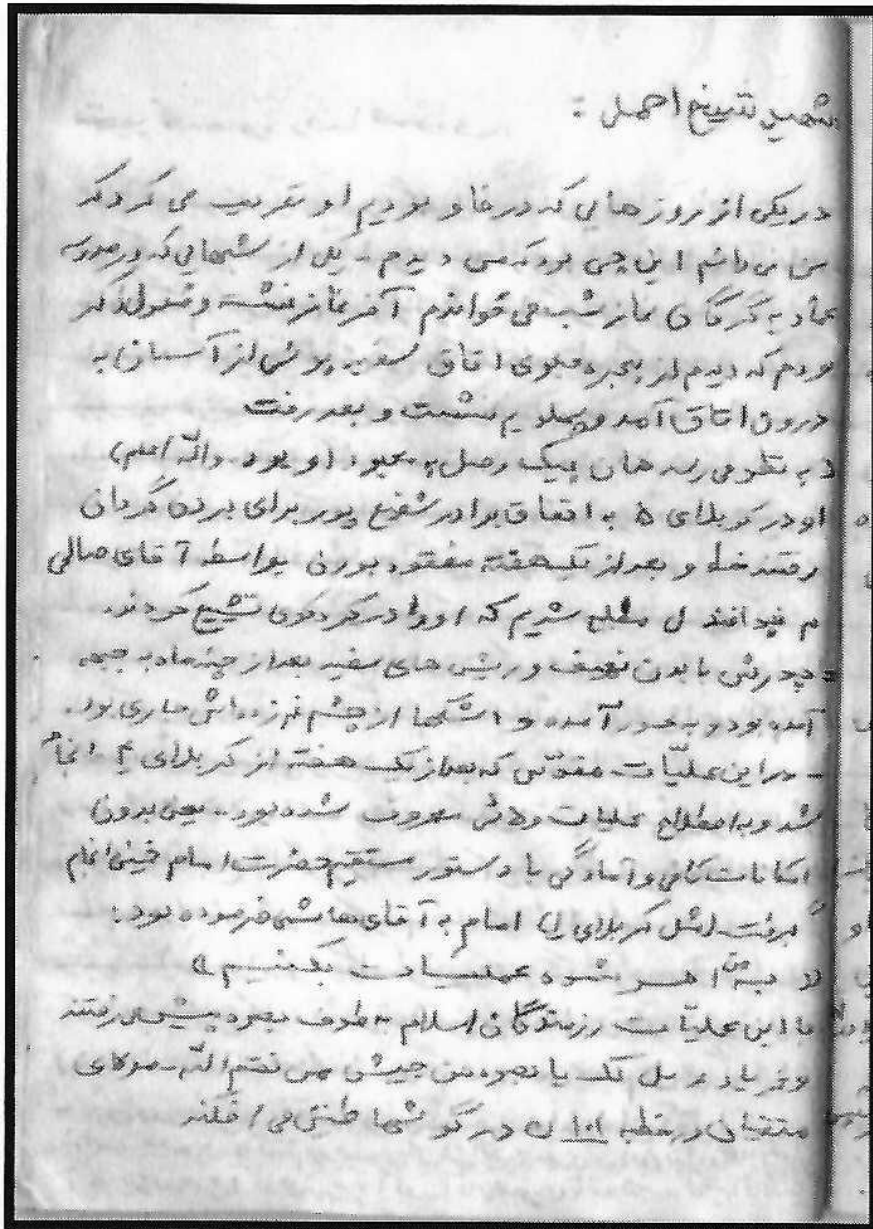 شهید شیخ احمد :
در یکی از روزهایی که در خاو بودیم او تعریف می کرد که
من نمی دانم این چی بود که من دیدم - یکی از شبهایی که در مدرسه
عمادیه گرگان نماز شب می خواندم آخر نماز نشسته و مشغول ذکر
بودم که دیدم از پنجره جلوی اتاق سفید پوشی از آسمان به
درون اتاق آمد و پهلویم نشست و بعد رفت
( به نظر می رسد همان پیک وصل به معبود او بود. والله اعلم )
او در کربلای ۵ به اتفاق برادر شفیع پور برای بردن گردان
رفتند خط و بعد از یک هفته مفقود بودن بواسطه آقای صالحی
مطلع شدیم که او را در کردکوی تشییع کردند.
پدرش با بدن نحیف و ریش های سفید بعد از چند ماه به جبهه
آمده بود و اشکها از چشم غم زده اش جاری بود.
- در این عملیات که بعد از یک هفته از کربلای ۴ انجام
شد و به اصطلاح عملیات معروف شده بود - یعنی بدون
امکانات کافی و آمادگی با دستور مستقیم حضرت امام خمینی انجام
گرفت امام به آقای هاشمی فرموده بود:
عملیات بکنیم »
با این عملیات رزمندگان اسلام به طرف بصره پیش می رفتند
و فریاد من جیش من نقم الله - مولای
متقیان در خطبه ۱۰۱ در گوشها طنین می افکند